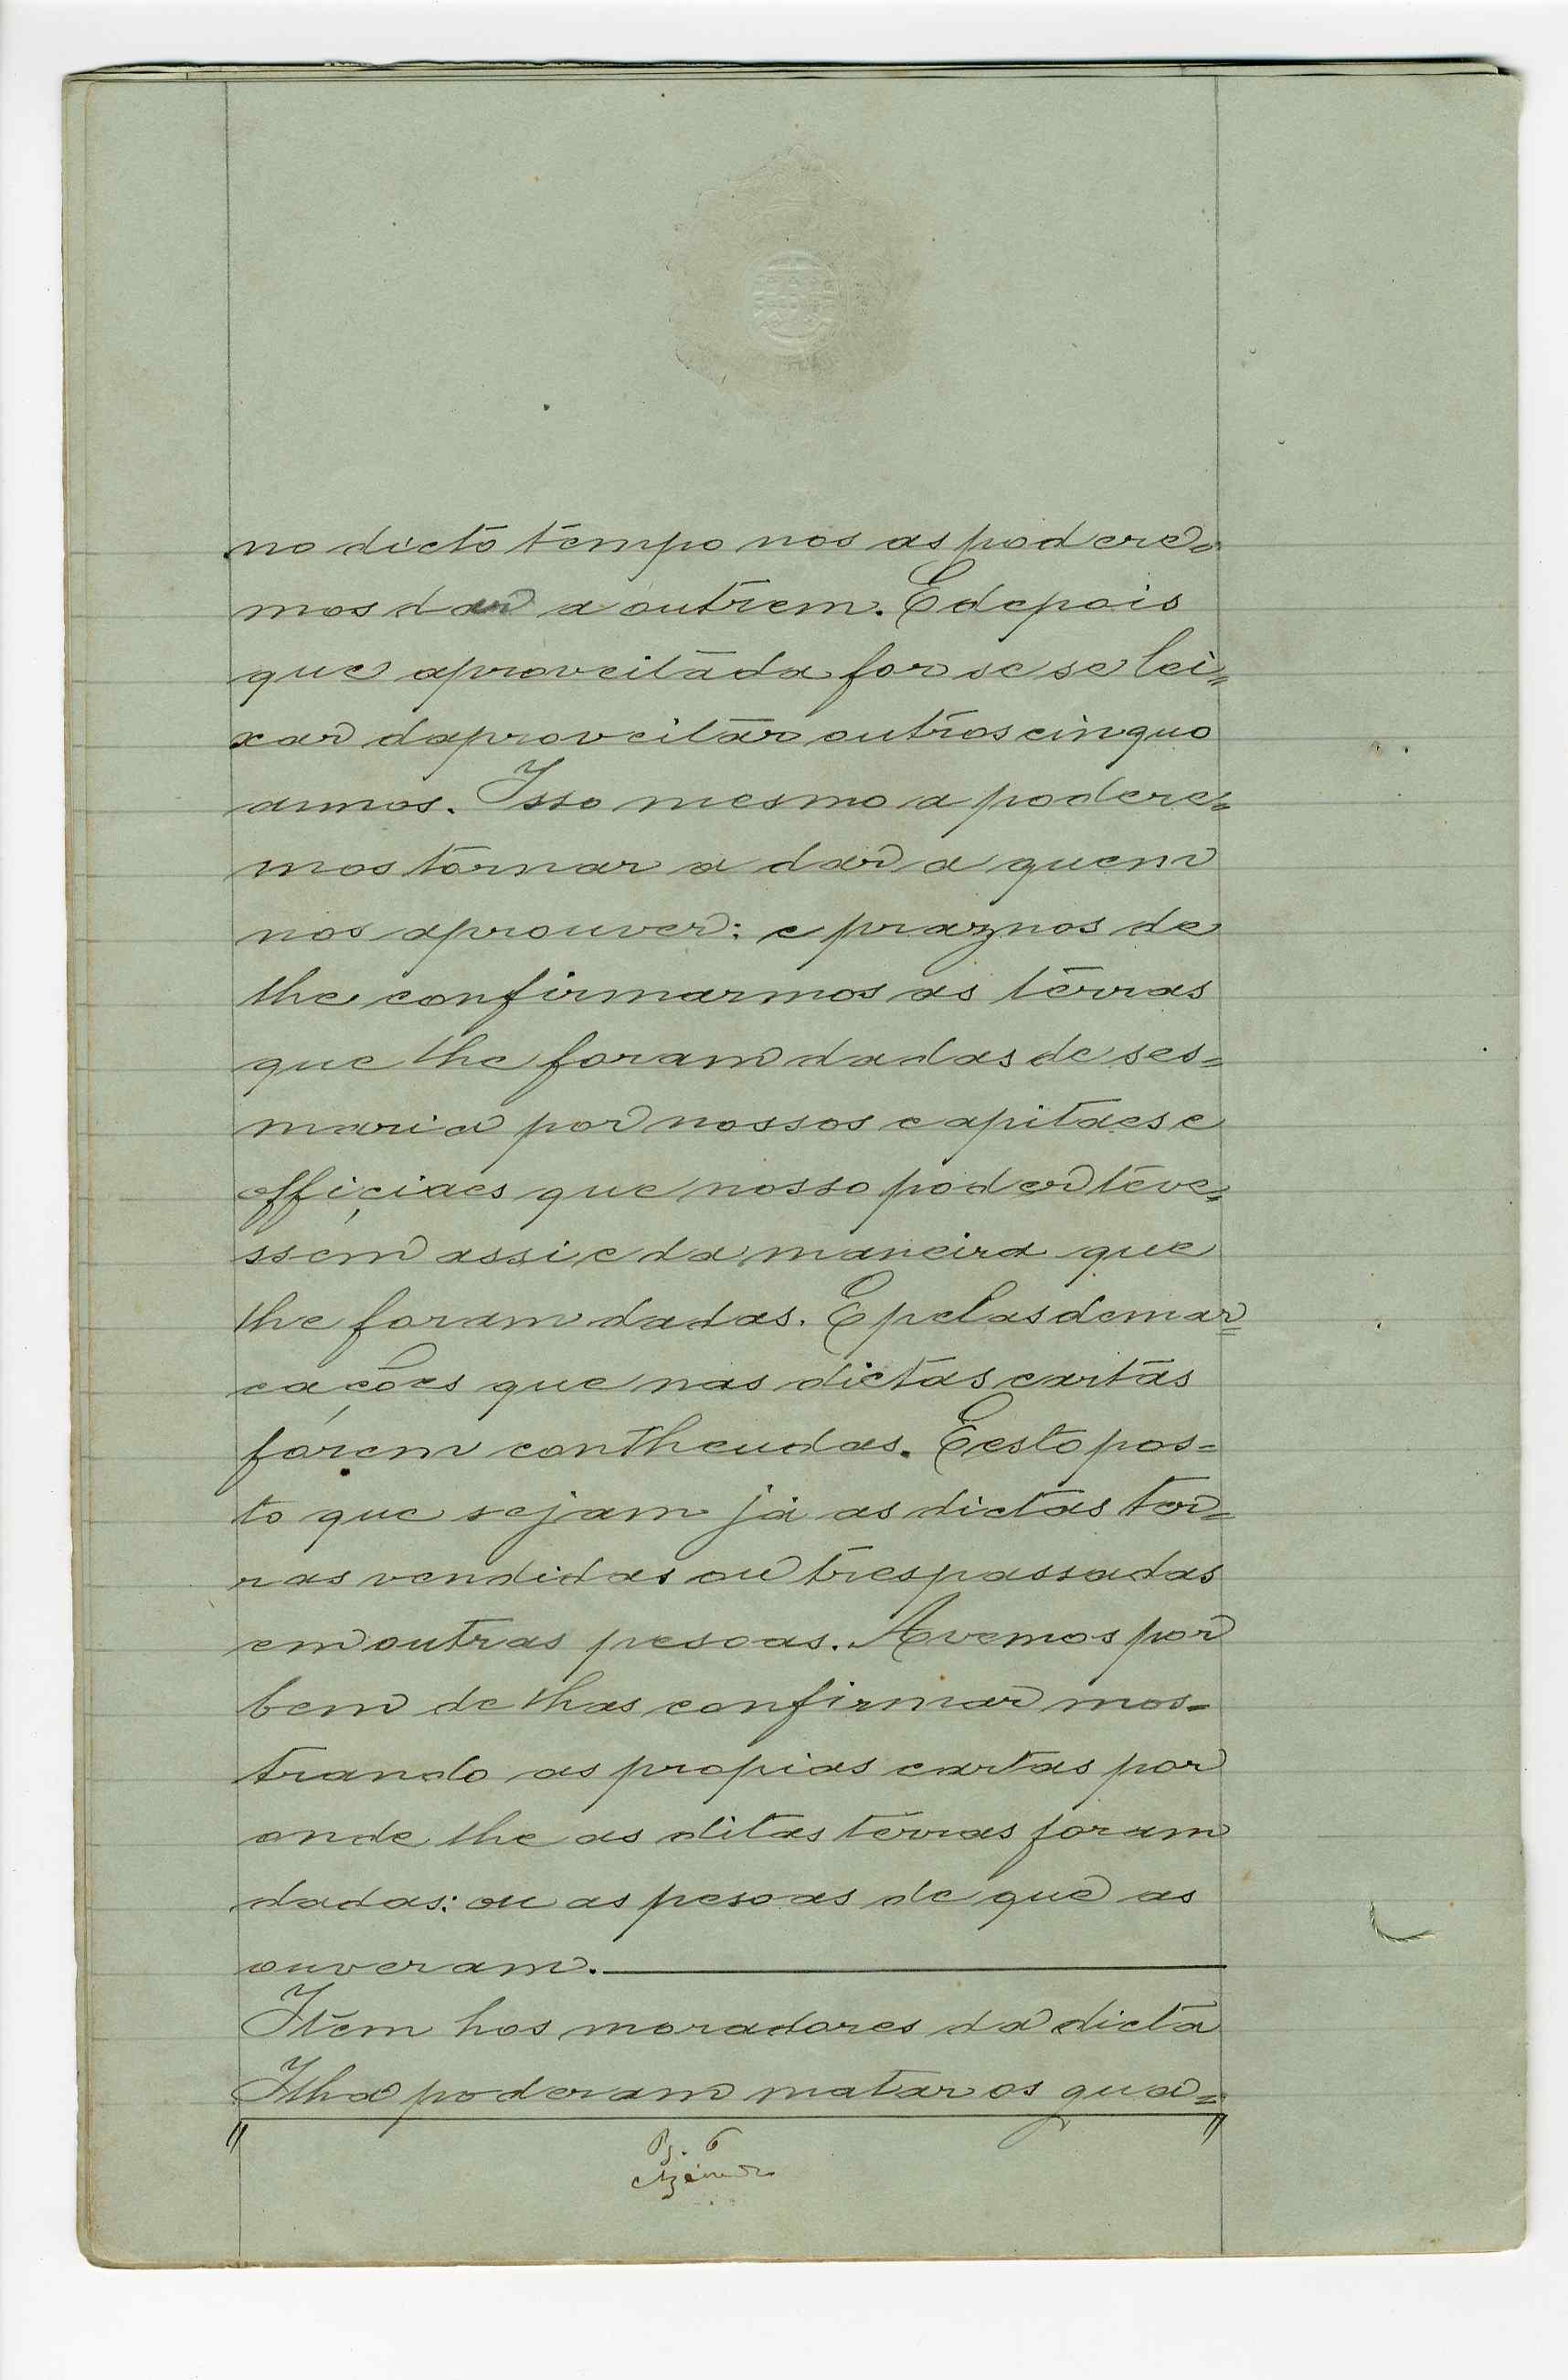 no dicto tempo nos as podere=
mos dar a outrem. E depois
que aproveitada for se se lei=
xar daproveitar outros cinquo
annos. Isso mesmo a podere=
mos tornar a dar a quem
nos aprouver: e praznos de
lhe confirmarmos as terras
que lhe foram dadas de ses=
maria por nossos capitaes e
offiçiaes que nosso poder teve=
ssem assi e da maneira que
lhe foram dadas. E pelas demar=
cações que nas dictas cartas
forem contheudas. E esto pos=
to que sejam já as dictas ter=
ras vendidas ou trespassadas
em outras pesoas. Avemos por
bem de lhas confirmar mos=
trando as propias cartas por
onde lhe as ditas terras foram
dadas: ou as pesoas de que as
ouveram.
Item hos moradores da dicta
Ilha poderam matar os gua=
" "
Pg. 6